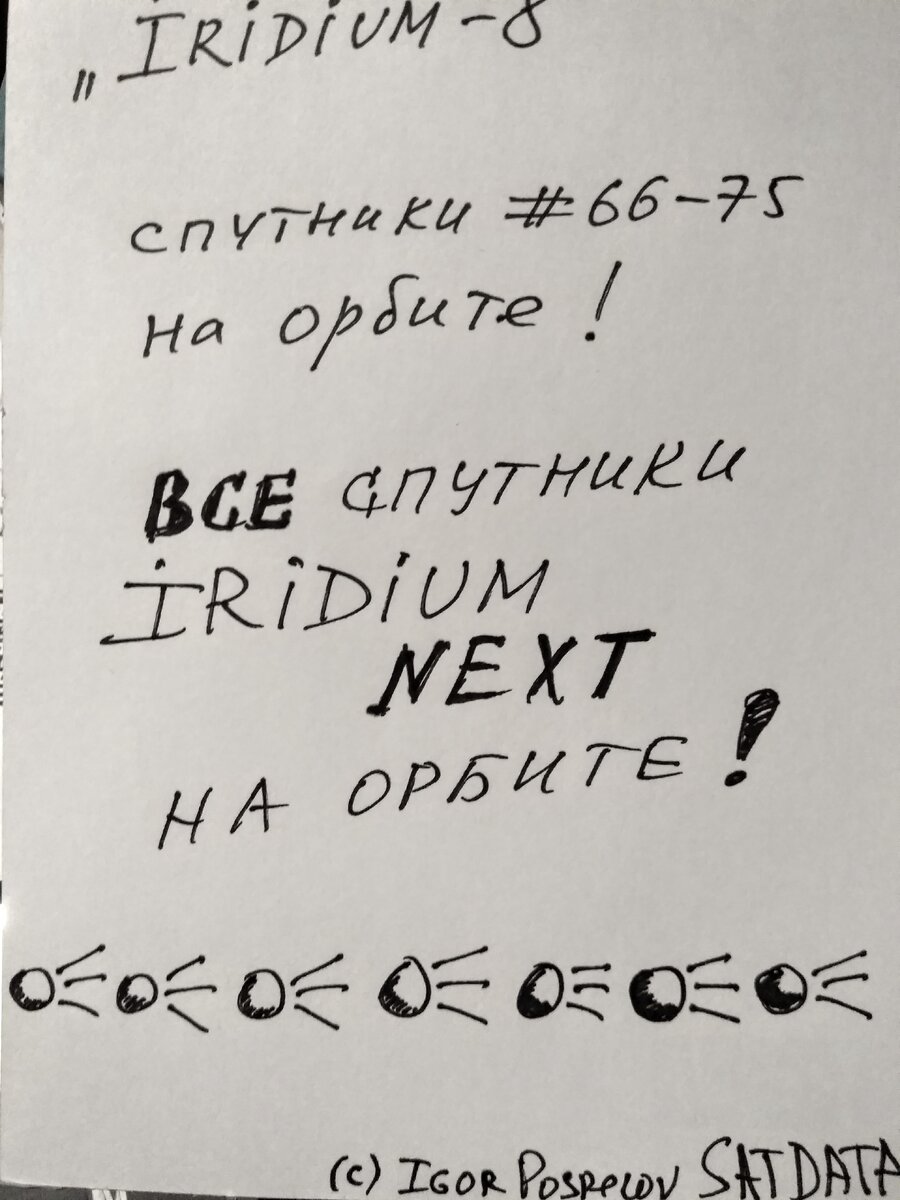 „IRiDiUM-8
спутники #66-75
на орбите!
ВСЕ спутники
IRiDiUM
NEXT
НА ОРБИТЕ!
(c) IGOR POSPELOV SATDATA